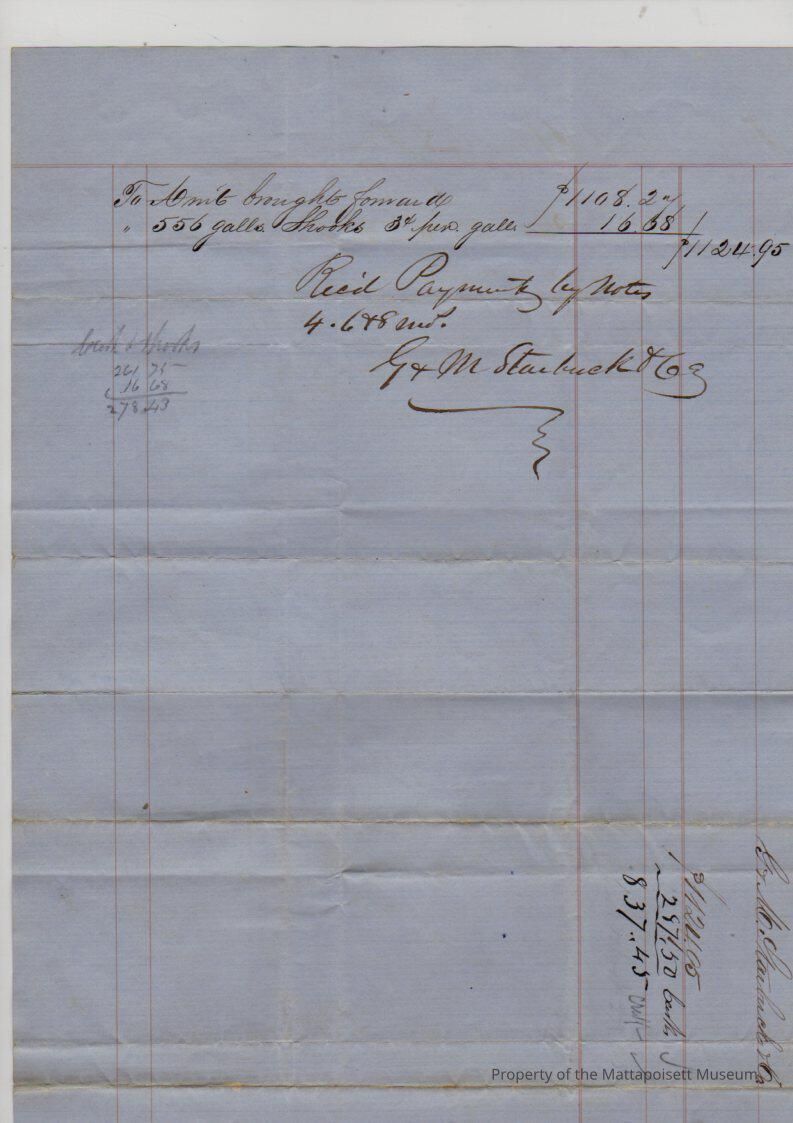 To Amt brought forward $1108.27
" 556 galls. Shooks 3ᶜ per. galls 16 68
$1124.95
Rec'd Payment by Notes
4. 6 & 8 mos.
G & M Starbuck & Co
cask & Shooks
261 75
16 68
278.43
G & M. Starbuck & Co
$1124.95
287.50 cash
837.45
Property of the Mattapoisett Museum